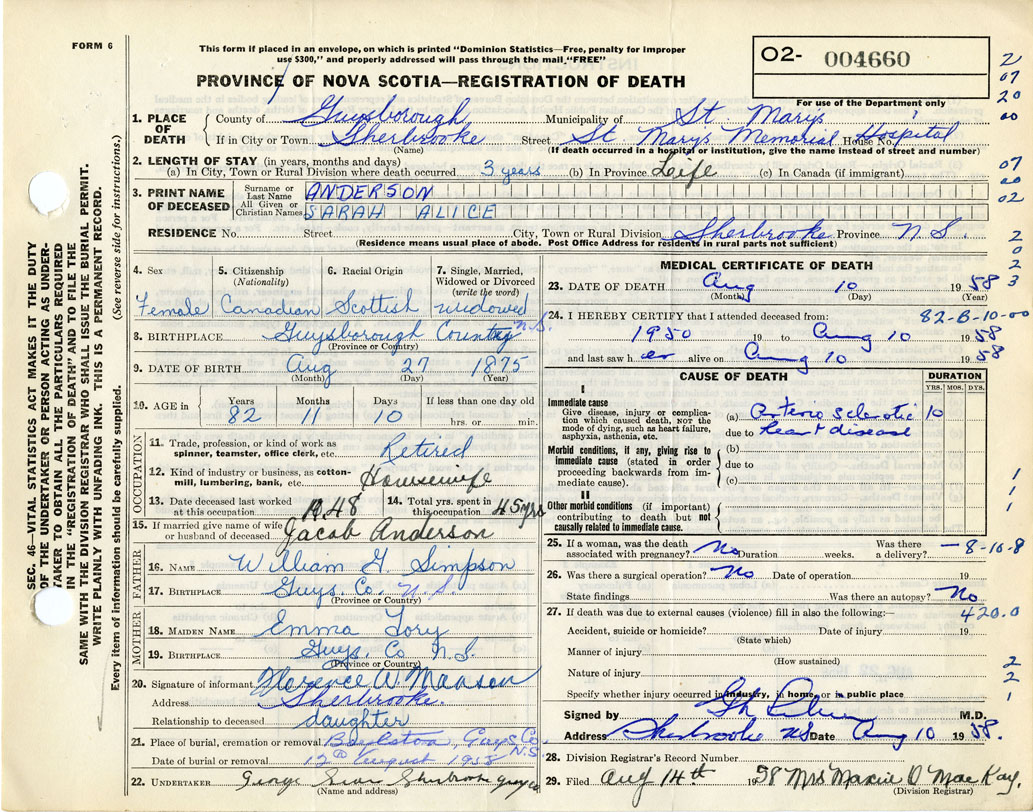 FORM 6
This form if placed in an envelope, on which is printed "Dominion Statistics—Free, penalty for improper
use $300," and properly addressed will pass through the mail "FREE"
O2- 004660
For use of the Department only
PROVINCE OF NOVA SCOTIA—REGISTRATION OF DEATH
1. PLACE OF DEATH
County of Guysborough Municipality of St. Mary's
If in City or Town Sherbrooke Street St Mary's Memorial House No. Hospital
(Name) (If death occurred in a hospital or institution, give the name instead of street and number)
2. LENGTH OF STAY (in years, months and days)
(a) In City, Town or Rural Division where death occurred 3 years (b) In Province Life (c) In Canada (if immigrant)
3. PRINT NAME OF DECEASED
Surname or Last Name ANDERSON
All Given or Christian Names SARAH ALICE
RESIDENCE No. Street City, Town or Rural Division Sherbrooke Province N.S.
(Residence means usual place of abode. Post Office Address for residents in rural parts not sufficient)
4. Sex
Female
5. Citizenship (Nationality)
Canadian
6. Racial Origin
Scottish
7. Single, Married, Widowed or Divorced (write the word)
widowed
8. BIRTHPLACE Guysborough County N.S.
(Province or Country)
9. DATE OF BIRTH Aug 27 1875
(Month) (Day) (Year)
10. AGE in
Years Months Days If less than one day old
82 11 10 hrs. or min.
OCCUPATION
11. Trade, profession, or kind of work as
spinner, teamster, office clerk, etc. Retired
12. Kind of industry or business, as cotton-
mill, lumbering, bank, etc. Housewife
13. Date deceased last worked at this occupation 1948
14. Total yrs. spent in this occupation 45 yrs
15. If married give name of wife
or husband of deceased Jacob Anderson
FATHER
16. NAME William G. Simpson
17. BIRTHPLACE Guys. Co. N.S.
(Province or Country)
MOTHER
18. MAIDEN NAME Emma Tory
19. BIRTHPLACE Guys. Co N.S.
(Province or Country)
20. Signature of informant Florence W. Manson
Address Sherbrooke.
Relationship to deceased daughter
21. Place of burial, cremation or removal Boylston Guys Co. N.S.
Date of burial or removal 12th August 1958
22. UNDERTAKER George Sherbrooke Guys Co
(Name and address)
MEDICAL CERTIFICATE OF DEATH
23. DATE OF DEATH Aug 10 1958
(Month) (Day) (Year)
24. I HEREBY CERTIFY that I attended deceased from: 82-B-10-00
1950 19 to Aug 10 1958
and last saw her alive on Aug 10 1958
CAUSE OF DEATH
DURATION
YRS. MOS. DYS.
I
Immediate cause
Give disease, injury or compli-
cation which caused death, NOT the
mode of dying, such as heart failure,
asphyxia, asthenia, etc.
(a) Arterio sclerotic 10
due to heart disease
Morbid conditions, if any, giving rise to
immediate cause (stated in order
proceeding backwards from im-
mediate cause).
(b)
due to
(c)
II
Other morbid conditions (if important)
contributing to death but not
causally related to immediate cause.
25. If a woman, was the death
associated with pregnancy? No Duration weeks. Was there a delivery? -8-10-8
26. Was there a surgical operation? No Date of operation 19
State findings Was there an autopsy? No
27. If death was due to external causes (violence) fill in also the following:— 420.0
Accident, suicide or homicide? Date of injury 19
(State which)
Manner of injury
(How sustained)
Nature of injury
Specify whether injury occurred in industry, in home, or in public place
Signed by M.D.
Address Sherbrooke NS Date Aug 10 1958.
28. Division Registrar's Record Number
29. Filed Aug 14th 1958 Mrs Maxine O' MacKay.
(Division Registrar)
2
07
20
00
07
00
02
2
0
2
3
1
1
1
2
2
1
SEC. 46—VITAL STATISTICS ACT MAKES IT THE DUTY
OF THE UNDERTAKER OR PERSON ACTING AS UNDER-
TAKER TO OBTAIN ALL THE PARTICULARS REQUIRED
IN THE "REGISTRATION OF DEATH" AND TO FILE THE
SAME WITH THE DIVISION REGISTRAR WHO SHALL ISSUE THE BURIAL PERMIT.
WRITE PLAINLY WITH UNFADING INK. THIS IS A PERMANENT RECORD.
Every item of information should be carefully supplied. (See reverse side for instructions.)